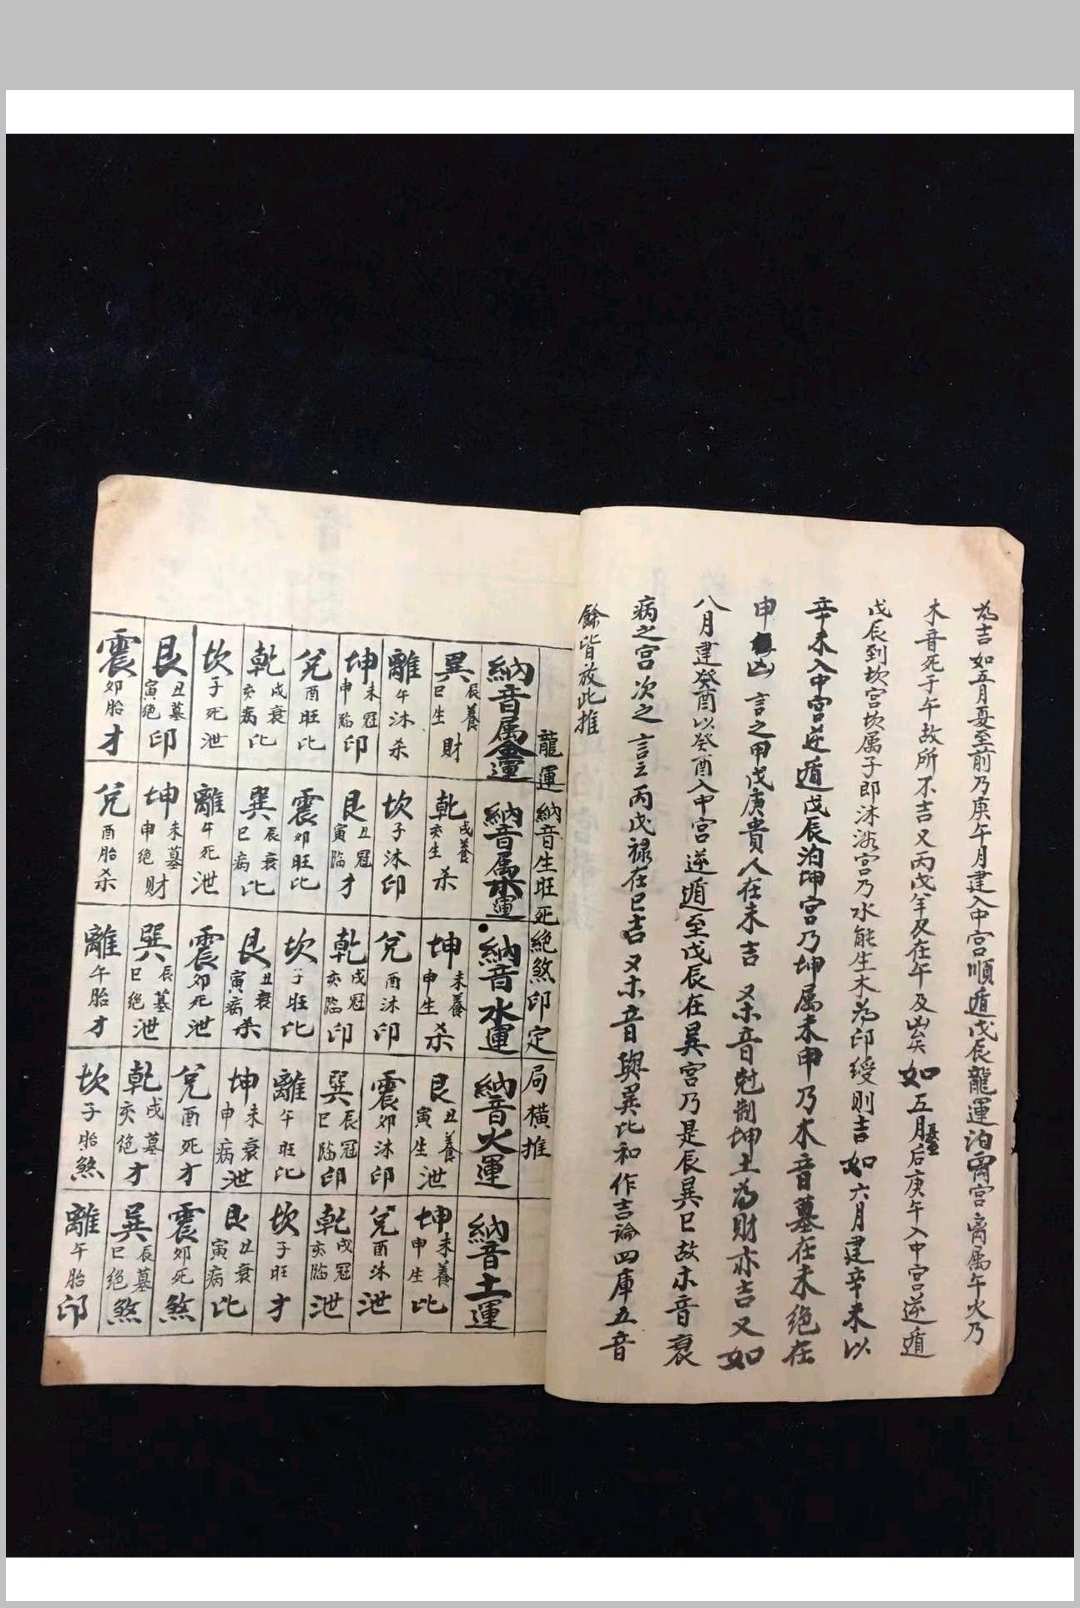 為吉 如五月夏至前乃庚午月建入中宮順遁戊辰龍運泊离宮离属午火乃
木音死于午故所不吉又丙戊羊刃在午及凶矣 如五月夏至后庚午入中宮逆遁
戊辰到坎宮坎属子郎沐浴宮乃水能生木為印绶則吉 如六月建辛未以
辛未入中宮逆遁戊辰泊坤宮乃坤属未申乃木音墓在未绝在
申凶 言之甲戊庚貴人在未吉 又木音尅制坤土為財亦吉 又如
八月建癸酉以癸酉入中宮逆遁至戊辰在巽宮乃是辰巽巳故木音衰
病之宮次之 言之丙戊禄在巳吉 又木音與巽比和作吉論四庫五音
餘皆放此推
龍運 納音生旺死絕煞印定局横推
納音属金運 巽 辰養 巳生 財 離 午沐 杀 坤 未冠 申臨 印 兌 酉旺 比 乾 戌衰 亥病 比 坎 子死 泄 艮 丑墓 寅绝 印 震 卯胎 才
納音属木運 乾 戌養 亥生 杀 坎 子沐 印 艮 丑冠 寅臨 才 震 卯旺 比 巽 辰衰 巳病 比 離 午死 泄 坤 未墓 申绝 财 兌 酉胎 杀
納音水運 坤 未養 申生 杀 兌 酉沐 印 乾 戌冠 亥臨 印 坎 子旺 比 艮 丑衰 寅病 杀 震 卯死 泄 巽 辰墓 巳绝 泄 離 午胎 才
納音火運 艮 丑養 寅生 泄 震 卯沐 印 巽 辰冠 巳臨 印 離 午旺 比 坤 未衰 申病 泄 兌 酉死 才 乾 戌墓 亥绝 才 坎 子胎 煞
納音土運 坤 未養 申生 比 兌 酉沐 泄 乾 戌冠 亥臨 泄 坎 子旺 才 艮 丑衰 寅病 比 震 卯死 煞 巽 辰墓 巳绝 煞 離 午胎 印